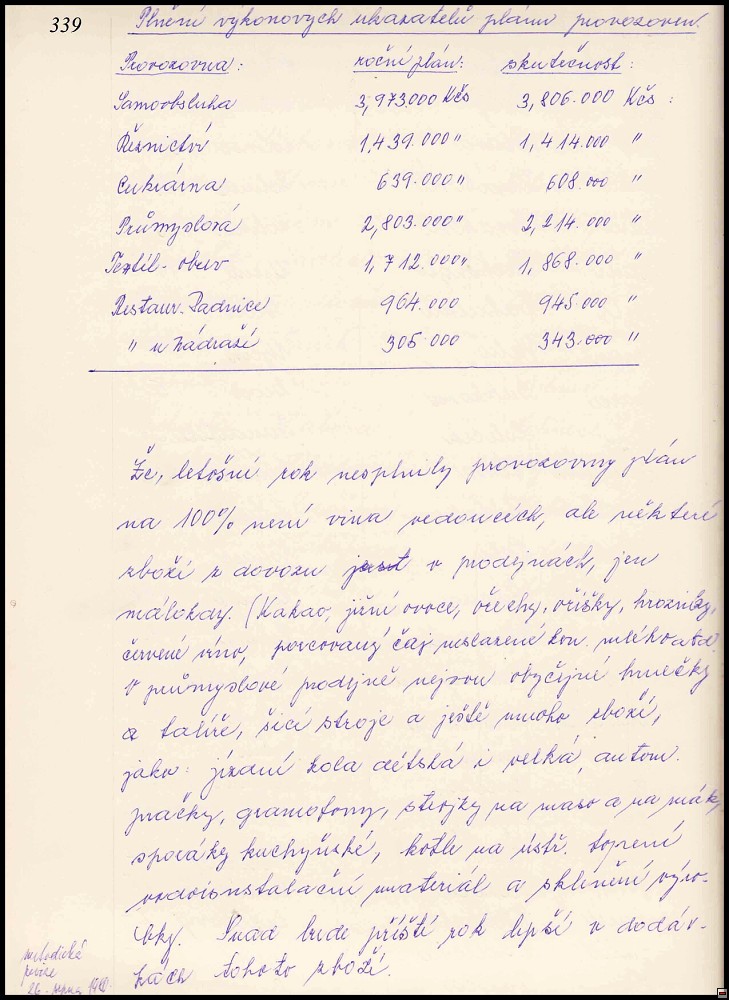 339
Plnění výkonových ukazatelů plánu provozoven.
Provozovna: roční plán: skutečnost:
Samoobsluha 3,973.000 Kčs 3,806.000 Kčs:
Řeznictví 1,439.000 " 1,414.000 "
Cukrárna 639.000 " 608.000 "
Průmyslová 2,803.000 " 2,214.000 "
Textil-obuv 1,712.000 " 1,868.000 "
Restaur. Radnice 964.000 945.000 "
" u nádraží 305.000 343.000 "
Že, letošní rok nesplnily provozovny plán
na 100% není vina vedoucích, ale některé
zboží z dovozu v prodejnách, jen
málokdy. (Kakao, jižní ovoce, ořechy, oříšky, hrozinky,
červené víno, porcovaný čaj neslazené kon. mléko atd.
V průmyslové prodejně nejsou obyčejné hrnečky
a talíře, šicí stroje a ještě mnoho zboží,
jako: jízdní kola dětská i velká, autom.
pračky, gramofony, strojky na maso a na mák,
sporáky kuchyňské, kotle na ústř. topení
vodoinstalační materiál a skleněné výro-
bky. Snad bude příští rok lepší v dodáv-
kách tohoto zboží.
metodická
26. srpna